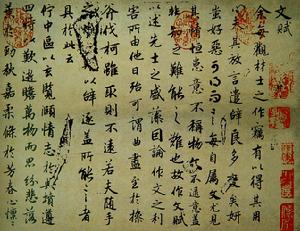 文賦
余每觀材士之作竊有以得其用
夫其放言遣辭良多變矣妍
蚩好惡可得而言每自屬文尤見
其情恒患意不稱物文不逮意蓋
非知之難能之難也故作文賦
以述先士之盛藻因論作文之利
害所由他日殆可謂曲盡至於操
斧伐柯雖取則不遠若夫隨手
之變以辭逮蓋所能言之者
具於此云
佇中區以玄覽頤情志於典墳遵
四時歎逝瞻萬物而思紛悲落
葉於勁秋嘉柔條於芳春心懍